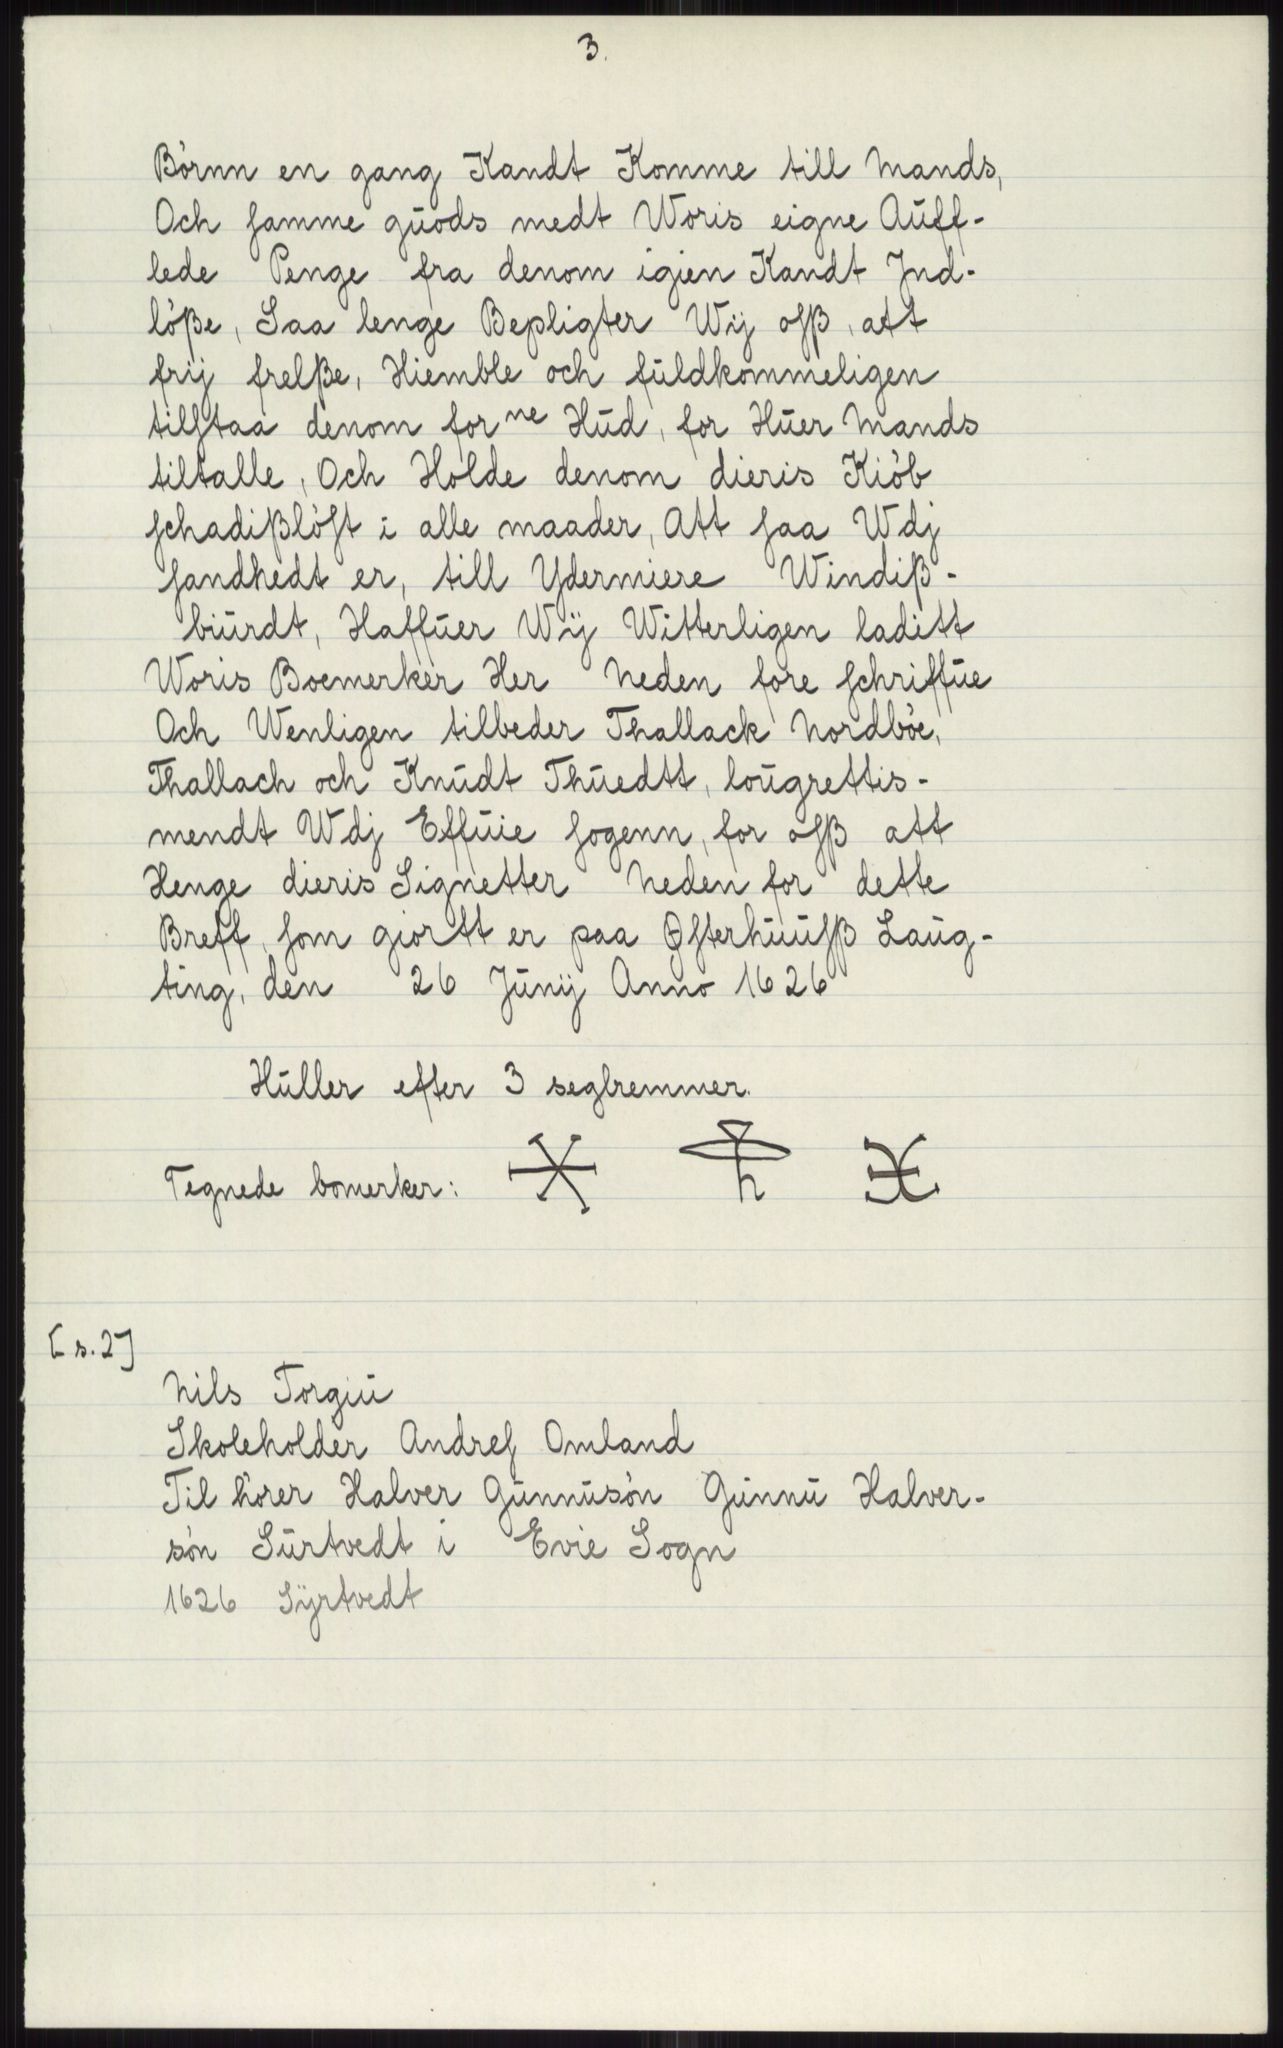 3.
Börnn en gang Kandt Komme till Mands,
Och ſamme gŭods medt Woris eigne Aŭff-
lede Penge fra denom igien Kandt Jnd-
löße, Saa lenge Bepligter Wij oſß, att
frij frelße, Hiemble och fŭldkommeligen
tilſtaa denom forne Hŭd, for Hŭer Mands
tiltalle, Och Holde denom dieris Kiöb
ſchadißlöſt i alle maader, Att ſaa Wdj
ſandhedt er, till Ydermiere Windiß-
biŭrdt, Haffŭer Wij Witterligen laditt
Woris Boemerker Her Neden fore ſchriffŭe
Och Wenligen tilbeder Thallack Nordböe,
Thallach och Knŭdt Thŭedtt, loŭgrettis-
mendt Wdj Effŭie ſogenn, for oſß att
Henge dieris Signetter Neden for dette
Breff, ſom giortt er paa Oſterhŭŭſß Laŭg-
ting, den 26 Jŭnij Anno 1626
Hŭller efter 3 seglremmer.
Tegnede bomerker:
[s. 2]
Nils Torgiŭ
Skoleholder Andreſ Omland
Til hörer Halver Gŭnnŭsön Gŭnnŭ Halver-
sön Sŭrtvedt i Evie Sogn
1626 Sÿrtvedt